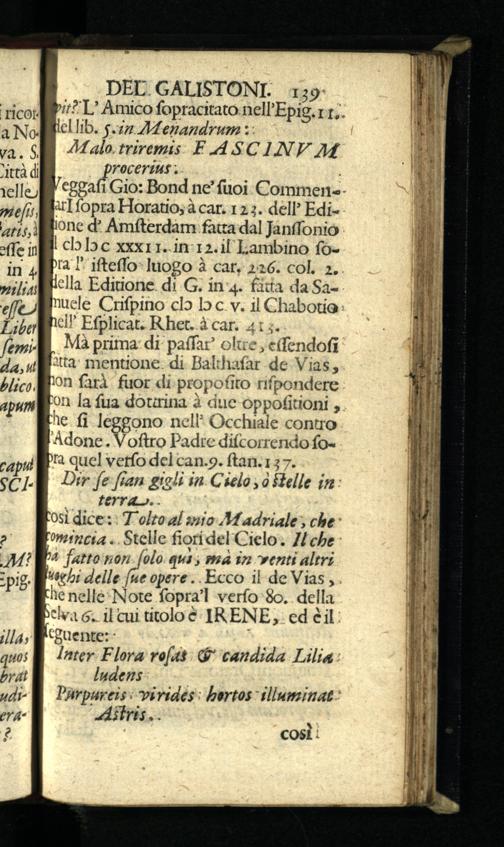 DEL GALISTONI. 139
pit? L'Amico sopracitato nell'Epig. 11.
del lib. 5. in Menandrum:
Malo triremis FASCINVM
procerius.
Veggasi Gio: Bond ne' suoi Commen-
tarI sopra Horatio, à car. 123. dell' Edi-
tione d' Amsterdam fatta dal Janssonio
il cIɔ Iɔ c XXXII. in 12. il Lambino so-
pra l' istesso luogo à car. 226. col. 2.
della Editione di G. in 4. fatta da Sa-
muele Crispino cIɔ Iɔ c V. il Chabotio
nell' Esplicat. Rhet. à car. 413.
Mà prima di passar' oltre, essendosi
fatta mentione di Balthasar de Vias,
non sarà fuor di proposito rispondere
con la sua dottrina à due oppositioni,
che si leggono nell' Occhiale contro
l'Adone. Vostro Padre discorrendo so-
pra quel verso del can. 9. stan. 137.
Dir se sian gigli in Cielo, ò stelle in
terra.
così dice: Tolto al mio Madriale, che
comincia. Stelle fiori del Cielo. Il che
hà fatto non solo quì, mà in venti altri
luoghi delle sue opere. Ecco il de Vias,
che nelle Note sopra'l verso 80. della
Selva 6. il cui titolo è IRENE, ed è il
seguente:
Inter Flora rosas & candida Lilia
ludens
Purpureis virides hortos illuminat
Astris.
così
i ricor-
a No-
va. S.
Città di
nelle
mesis,
atis, à
esse in
in 4.
milias
esse
Liber
semi-
da, ut
blico.
apum
caput
SCI-
?
M?
Epig.
illa,
quos
brat
udi-
era-
?